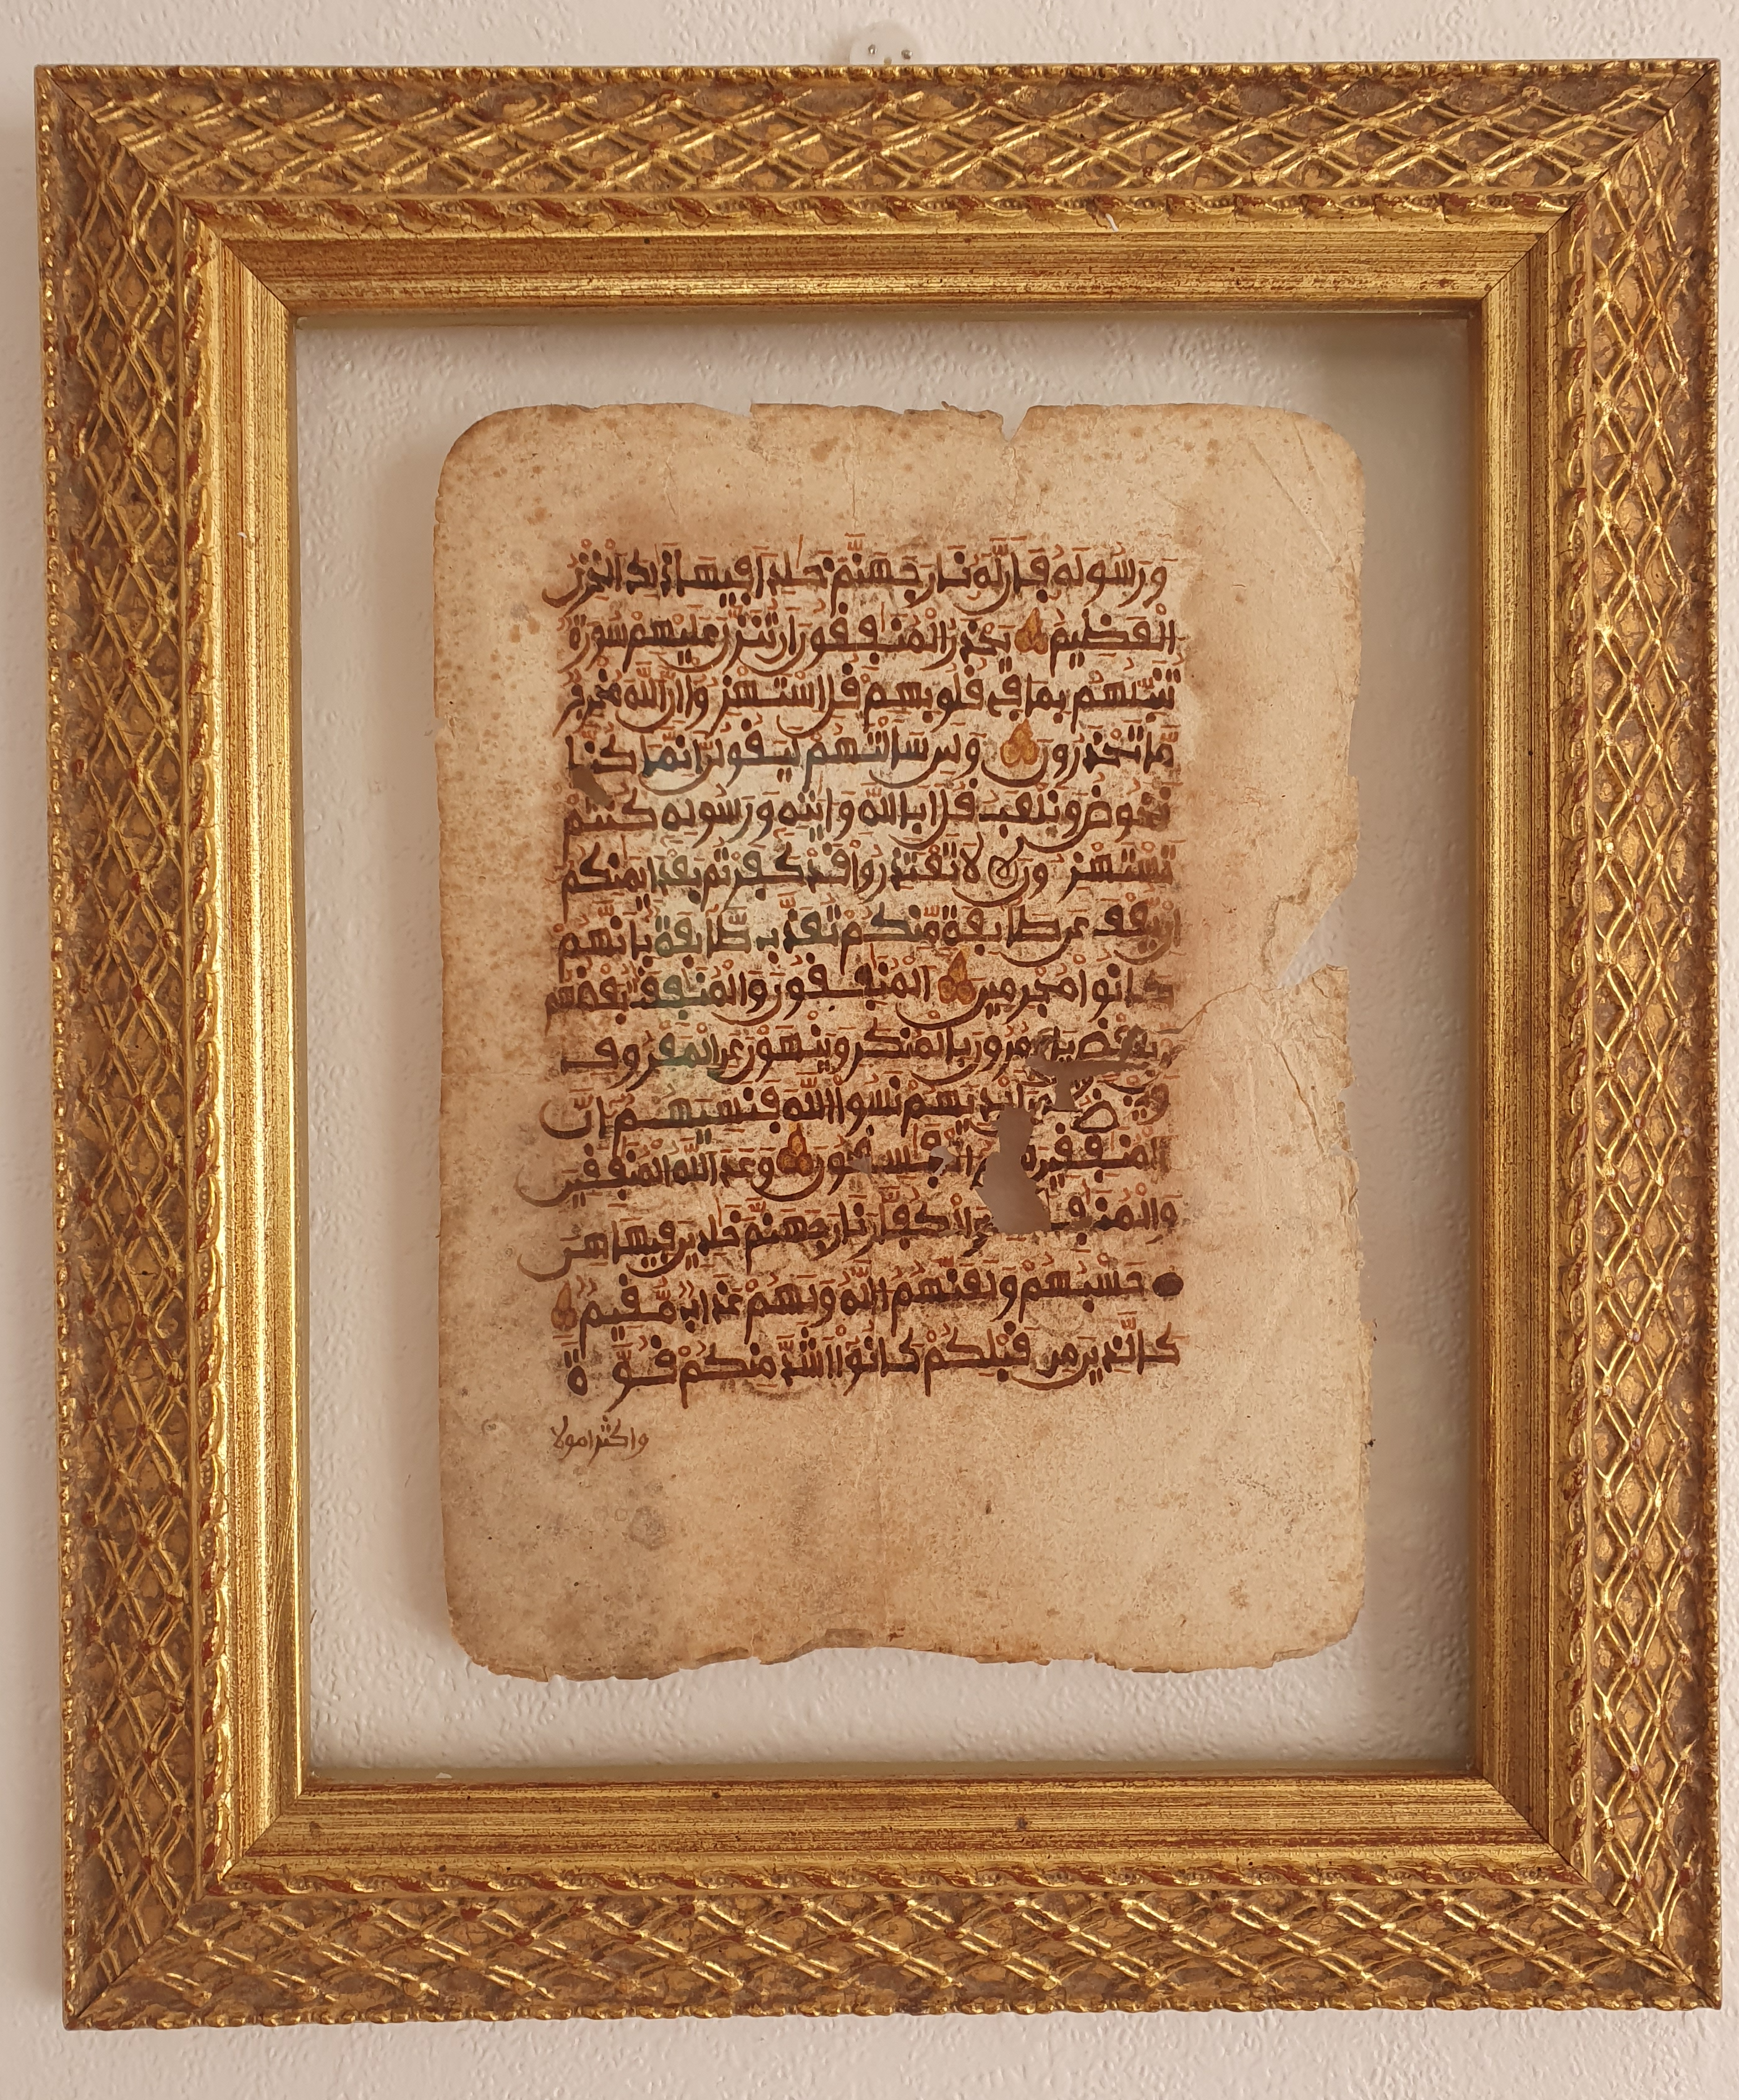 ورسوله فان له نار جهنم خلدا فيها ذلك الخزي
العظيم يحذر المنفقون ان تنزل عليهم سورة
تنبئهم بما في قلوبهم قل استهزءوا ان الله مخرج
ما تحذرون ولئن سالتهم ليقولن انما كنا
نخوض ونلعب قل ابالله وايته ورسوله كنتم
تستهزءون لا تعتذروا قد كفرتم بعد ايمنكم
ان يعف عن طايفة منكم تعذب طايفة بانهم
كانوا مجرمين المنفقون والمنفقت بعضهم
من بعض يامرون بالمنكر وينهون عن المعروف
ويقبضون ايديهم نسوا الله فنسيهم ان
المنفقين هم الفسقون وعد الله المنفقين
والمنفقت والكفار نار جهنم خلدين فيها هي
حسبهم ولعنهم الله ولهم عذاب مقيم
كالذين من قبلكم كانوا اشد منكم قوة
واكثر امولا